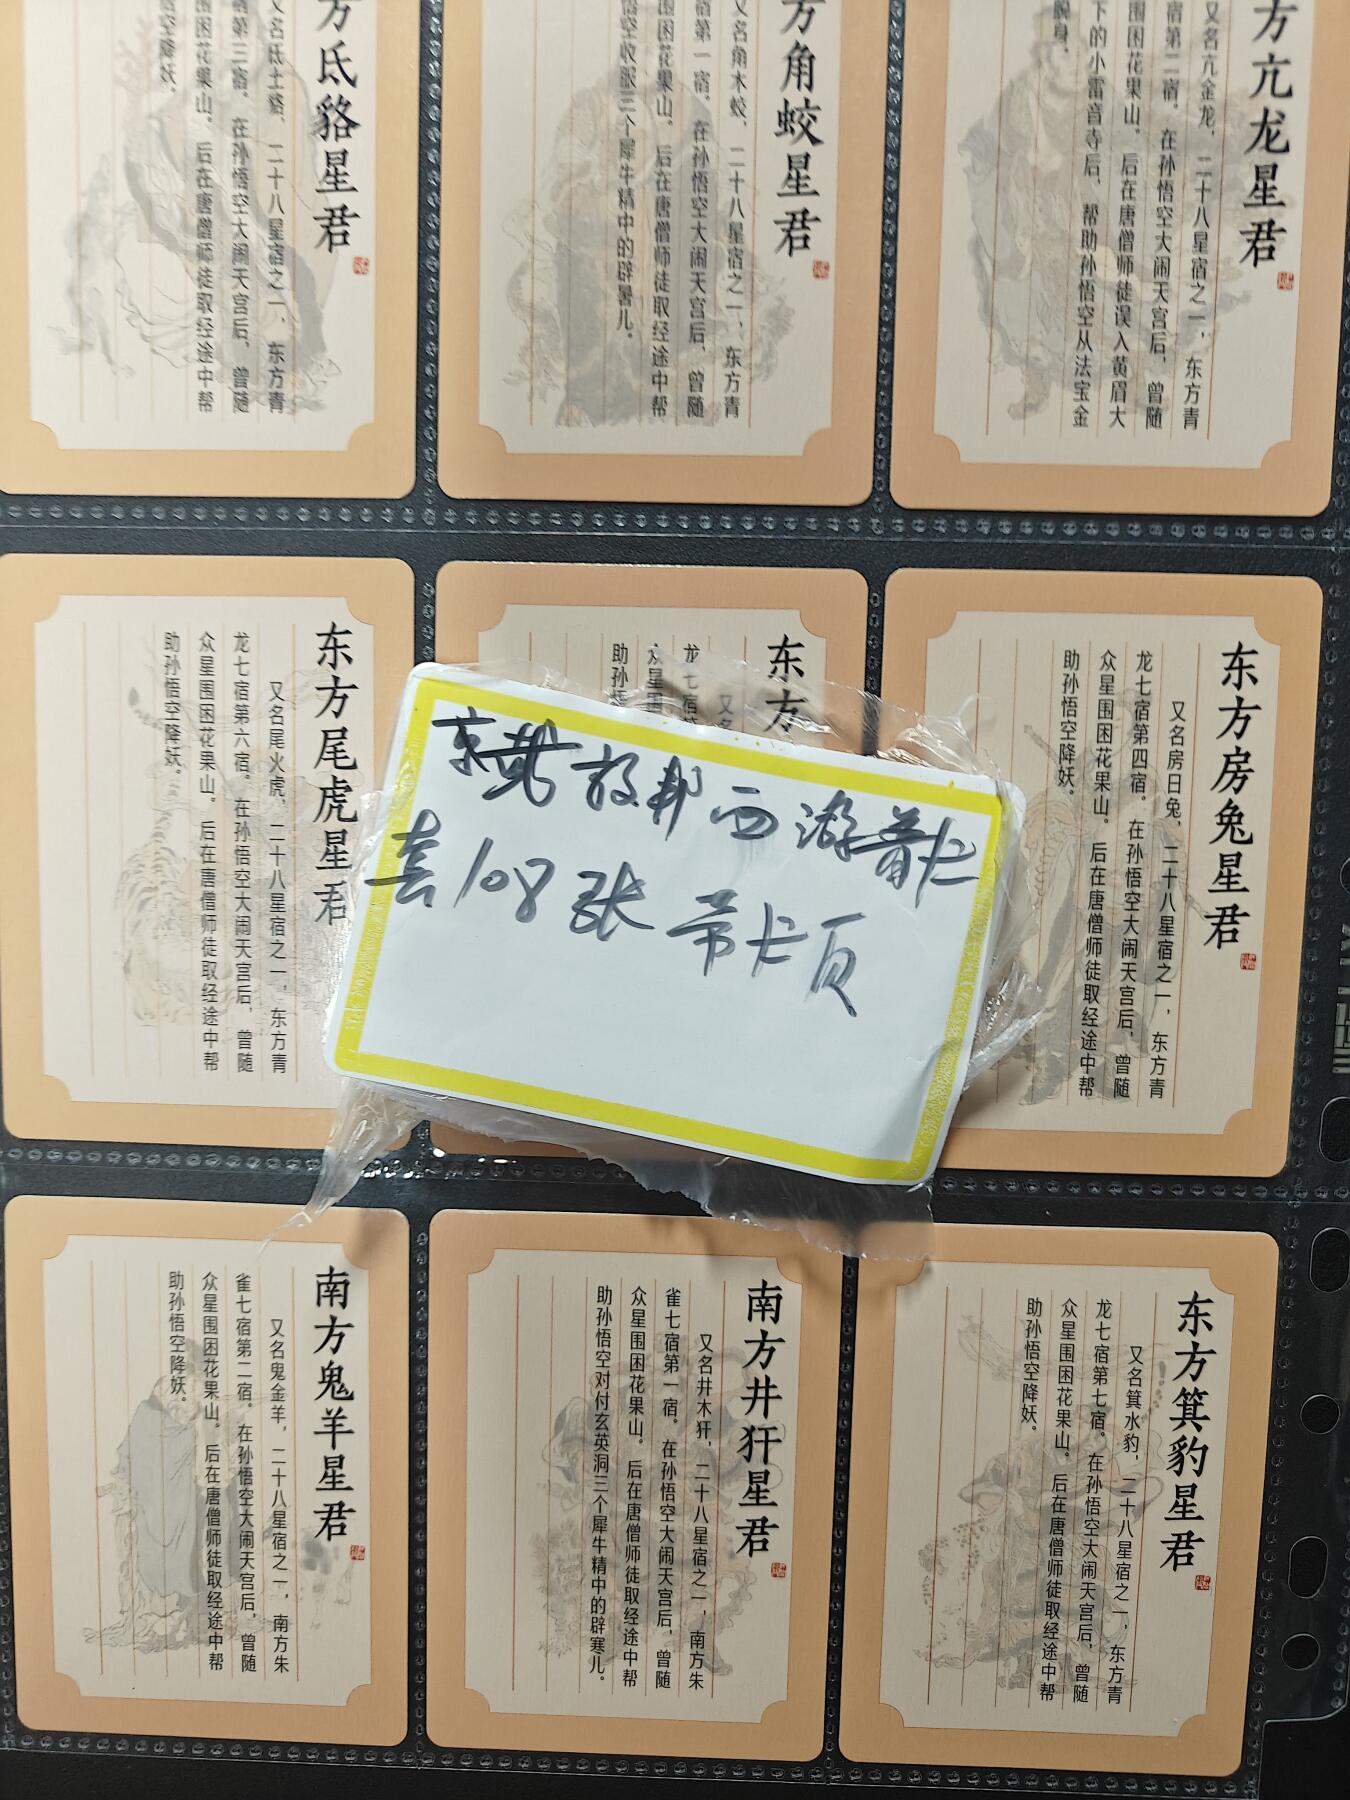 方氐貉星君
又名氐土貉，二十八星宿之一，东方青
宿第三宿。在孙悟空大闹天宫后，曾随
围困花果山。后在唐僧师徒取经途中帮
悟空降妖。
方角蛟星君
又名角木蛟，二十八星宿之一，东方青
宿第一宿。在孙悟空大闹天宫后，曾随
围困花果山。后在唐僧师徒取经途中帮
悟空收服三个犀牛精中的辟暑儿。
方亢龙星君
又名亢金龙，二十八星宿之一，东方青
宿第二宿。在孙悟空大闹天宫后，曾随
围困花果山。后在唐僧师徒误入黄眉大
下的小雷音寺后，帮助孙悟空从法宝金
脱身。
东方尾虎星君
又名尾火虎，二十八星宿之一，东方青
龙七宿第六宿。在孙悟空大闹天宫后，曾随
众星围困花果山。后在唐僧师徒取经途中帮
助孙悟空降妖。
东方
又名
龙七宿
众星围
助孙悟
东方房兔星君
又名房日兔，二十八星宿之一，东方青
龙七宿第四宿。在孙悟空大闹天宫后，曾随
众星围困花果山。后在唐僧师徒取经途中帮
助孙悟空降妖。
西游
套108张带卡页
南方鬼羊星君
又名鬼金羊，二十八星宿之一，南方朱
雀七宿第二宿。在孙悟空大闹天宫后，曾随
众星围困花果山。后在唐僧师徒取经途中帮
助孙悟空降妖。
南方井犴星君
又名井木犴，二十八星宿之一，南方朱
雀七宿第一宿。在孙悟空大闹天宫后，曾随
众星围困花果山。后在唐僧师徒取经途中帮
助孙悟空对付玄英洞三个犀牛精中的辟寒儿。
东方箕豹星君
又名箕水豹，二十八星宿之一，东方青
龙七宿第七宿。在孙悟空大闹天宫后，曾随
众星围困花果山。后在唐僧师徒取经途中帮
助孙悟空降妖。